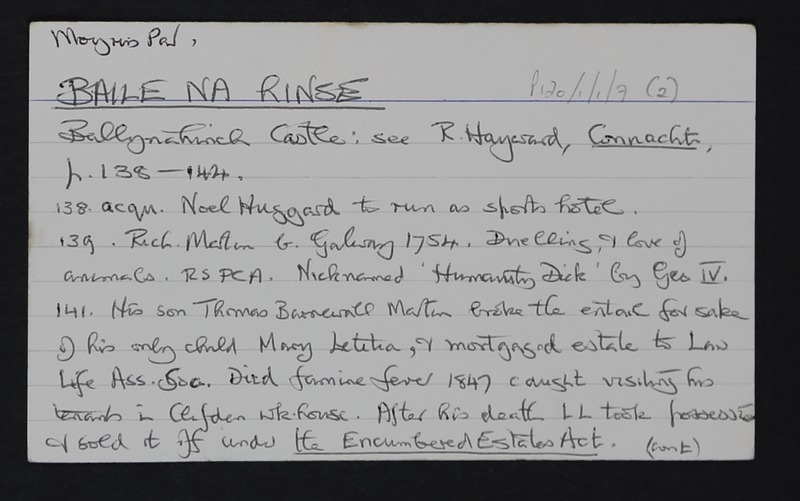 Moyrus Par,
BAILE NA RINSE P120/1/1/7 (2)
Ballynahinch Castle: see R. Hayward, Connacht,
p. 138 — 142.
138. acqu. Noel Huggard to run as sports hotel.
139. Rich. Martin b. Galway 1754. Duelling, & love of
animals. RSPCA. Nicknamed 'Humanity Dick' by Geo IV.
141. His son Thomas Barnewall Martin broke the entail for sake
of his only child Mary Letitia, & mortgaged estate to Law
Life Ass. Soc. Died famine fever 1847 caught visiting his
tenants in Clifden wkhouse. After his death LL took possession
& sold it off under the Encumbered Estates Act. (cont)